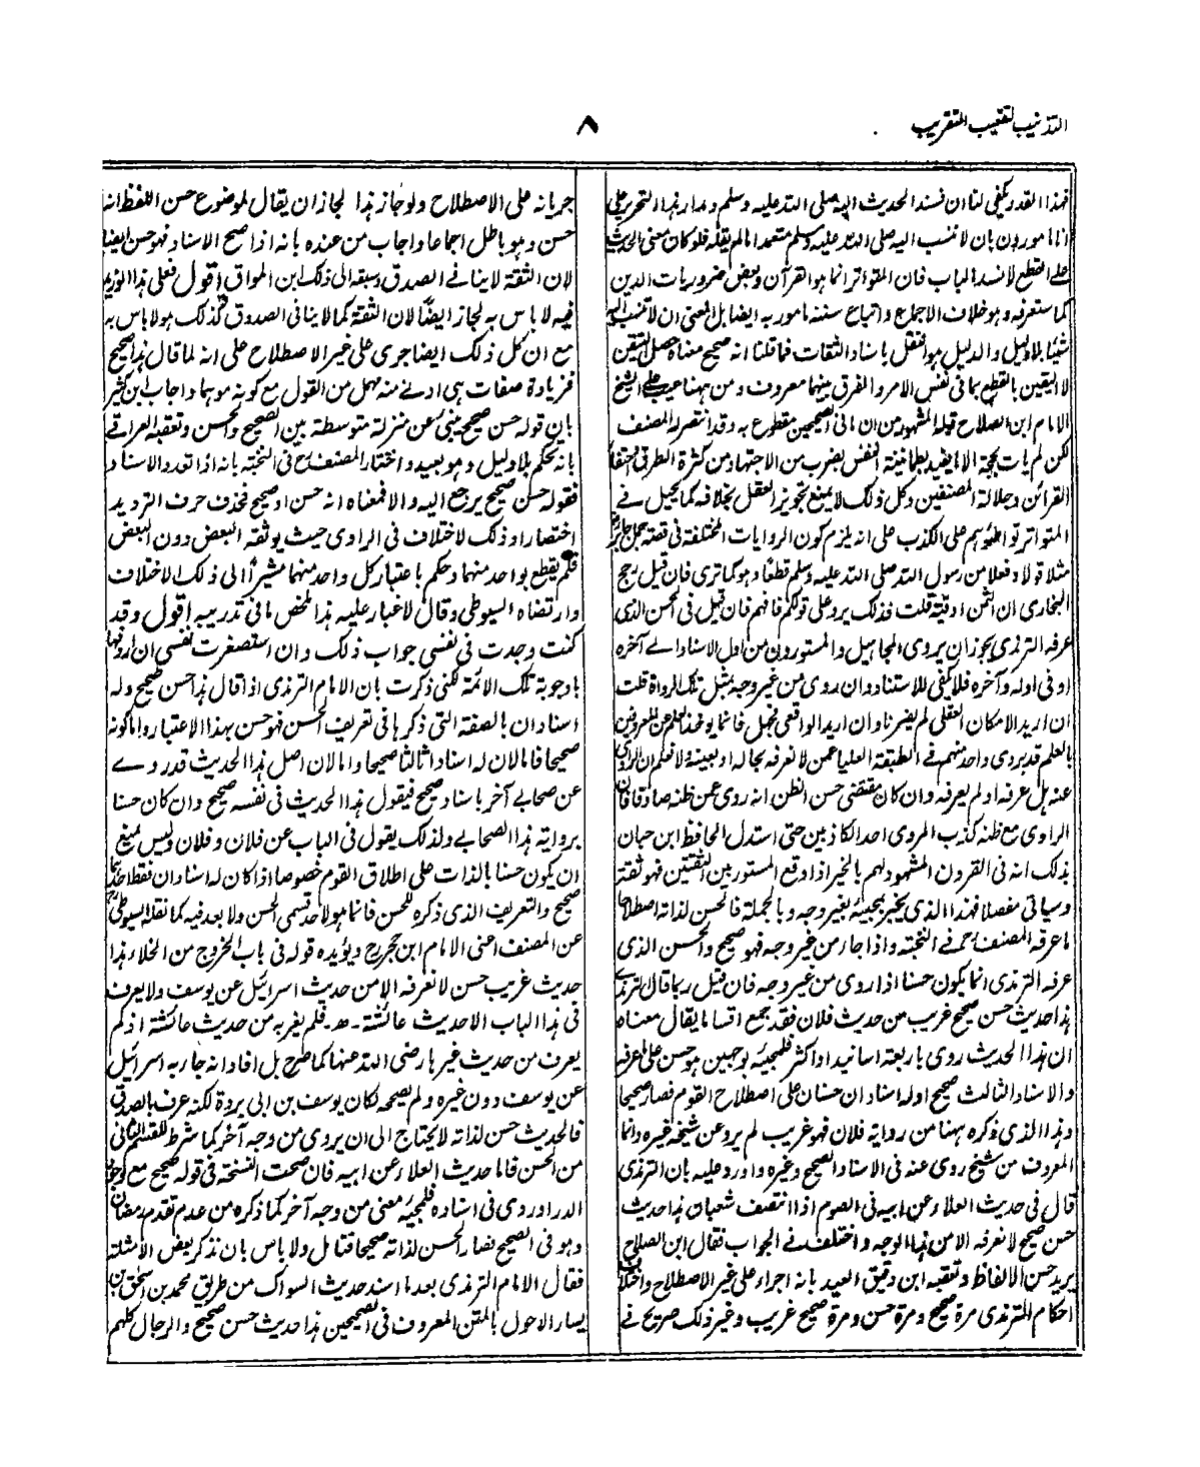 التذنيب لتعقيب التقريب
٨
فهذا القدر يكفى لنا ان نسند الحديث اليه صلى الله عليه وسلم ومدار هذا التحرير على
انا مامورون بان لا ننسب اليه صلى الله عليه وسلم متعمدا ما لم يقله فلو كان معنى الحديث
على القطع لانسد الباب فان المتواتر انما هو القرآن وبعض ضروريات الدين
كما ستعرفه وهو خلاف الاجماع واتباع سنته مامور به ايضا بل المعنى ان لا ننسب اليه
شيئا بلا دليل والدليل هو النقل باسناد الثقات فما قلنا انه صحيح معناه حصل اليقين
لا اليقين بالقطع بما فى نفس الامر والفرق بينهما معروف ومن ههنا عيب على الشيخ
الامام ابن الصلاح قوله المشهور من ان ما فى الصحيحين مقطوع به وقد انتصر له المصنف
لكن لم يات بحجة الا ما يفيد بطمانينة النفس بضرب من الاجتهاد من كثرة الطرق
القرائن وجلالة المصنفين وكل ذلك لا يمنع تجويز العقل بخلافه كما يحيل فى
المتواتر تواطؤهم على الكذب على انه يلزم كون الروايات المختلفة فى قصة جمل جابر
مثلا قولا وفعلا من رسول الله صلى الله عليه وسلم قطعا وهو كما ترى فان قيل رجح
البخارى ان الثمن اوقية قلت فذلك يرد على قولكم فافهم فان قيل فى الحسن الذى
عرفه الترمذى يجوز ان يروى المجاهيل والمستورون من اول الاسناد الى آخره
او فى اوله وآخره فلا يكفى للاستناد وان روى من غير وجه بمثل تلك الرواة قلت
ان اريد الامكان العقلى لم يضرنا وان اريد الواقعى فجهل فانما يوخذ العلم عن المعروفين
بالعلم قد يروى واحد منهم فى الطبقة العليا عمن لا نعرفه بحاله او بعينه لا نعلم ان الراوى
عنه بل عرفه او لم يعرفه وان كان مقتضى حسن الظن انه روى عمن ظنه صادقا فان
الراوى مع ظنه كذب المروى احد الكاذبين حتى استدل الحافظ ابن حبان
بذلك انه فى القرون المشهود لهم بالخير اذا وقع المستور بين الثقتين فهو ثقة
وسياتى مفصلا فهذا الذى يخبر بمجيئه بغير وجه وبالجملة فالحسن لذاته اصطلاحا
ما عرفه المصنف فى النخبة واذا جاء من غير وجه فهو صحيح والحسن الذى
عرفه الترمذى انما يكون حسنا اذا روى من غير وجه فان قيل ربما قال الترمذى
هذا حديث حسن صحيح غريب من حديث فلان فقد يجمع اقساما يقال معناه
ان هذا الحديث روى باربعة اسانيد او اكثر فلمجيئه بوجهين هو حسن على ما عرفه
والاسناد الثالث صحيح او له اسنادان حسنان على اصطلاح القوم فصار صحيحا
وهذا الذى ذكره ههنا من رواية فلان فهو غريب لم يرو عن شيخه غيره وانما
المعروف من شيخ روى عنه فى الاسناد الصحيح وغيره واورد عليه بان الترمذى
قال فى حديث العلاء عن ابيه فى الصوم اذا انتصف شعبان هذا حديث
حسن صحيح لا نعرفه الا من هذا الوجه واختلف فى الجواب فقال ابن الصلاح
يريد حسن الالفاظ وتعقبه ابن دقيق العيد بانه اجراء على غير الاصطلاح واختلاف
احكام الترمذى مرة صحيح ومرة حسن ومرة صحيح غريب وغير ذلك صريح فى
جريانه على الاصطلاح ولو جاز هذا لجاز ان يقال لموضوع حسن اللفظ انه
حسن وهو باطل اجماعا واجاب من عنده بانه اذا صح الاسناد فهو حسن ايضا
لان الثقة لا ينافى الصدق وسبقه الى ذلك ابن المواق اقول فعلى هذا لو زيد
فيه لا باس به لجاز ايضا لان الثقة كما لا ينافى الصدوق كذلك هو لا باس به
مع ان كل ذلك ايضا جرى على غير الاصطلاح على انه لما قال هذا صحيح
فزيادة صفات هى ادنى منه مهمل من القول مع كونه موهما واجاب ابن كثير
بان قوله حسن صحيح ينبئ عن منزلة متوسطة بين الصحيح والحسن وتعقبه العراقى
بانه تحكم بلا دليل وهو بعيد واختار المصنف فى النخبة بانه اذا تعدد الاسناد
فقوله حسن صحيح يرجع اليه والا فمعناه انه حسن او صحيح فحذف حرف الترديد
اختصارا وذلك لاختلاف فى الراوى حيث يوثقه البعض دون البعض
فلم يقطع بواحد منهما وحكم باعتبار كل واحد منهما مشيرا الى ذلك الاختلاف
وارتضاه السيوطى وقال لا غبار عليه هذا ملخص ما فى تدريبه اقول وقد
كنت وجدت فى نفسى جواب ذلك وان استصغرت نفسى ان اردفها
باجوبة تلك الائمة لكنى ذكرت بان الامام الترمذى اذا قال هذا حسن صحيح وله
اسنادان بالصفة التى ذكرها فى تعريف الحسن فهو حسن بهذا الاعتبار واما كونه
صحيحا فاما لان له اسنادا ثالثا صحيحا واما لان اصل هذا الحديث قد روى
عن صحابى آخر باسناد صحيح فيقول هذا الحديث فى نفسه صحيح وان كان حسنا
برواية هذا الصحابى ولذلك يقول فى الباب عن فلان وفلان وليس يمنع
ان يكون حسنا بالذات على اطلاق القوم خصوصا اذا كان له اسنادان فقط احدهما
صحيح والتعريف الذى ذكره للحسن فانما هو لاحد قسمى الحسن ولا بعد فيه كما نقله السيوطى
عن المصنف اعنى الامام ابن حجر ويؤيده قوله فى باب الخروج من الخلاء هذا
حديث غريب حسن لا نعرفه الا من حديث اسرائيل عن يوسف ولا يعرف
فى هذا الباب الا حديث عائشة ـ هـ ـ فلم يغربه من حديث عائشة اذ كم
يعرف من حديث غيرها رضى الله عنها كما صرح بل افاد انه جاء به اسرائيل
عن يوسف دون غيره ولم يصححه لكان يوسف بن ابى بردة لكنه عرف بالصدق
فالحديث حسن لذاته لا يحتاج الى ان يروى من وجه آخر كما شرط للقسم الثانى
من الحسن فاما حديث العلاء عن ابيه فان صحت النسخة فى قوله صحيح مع كون
الدراوردى فى اسناده فلمجيئه معنى من وجه آخر كما ذكره من عدم تقدم رمضان
وهو فى الصحيح فصار الحسن لذاته صحيحا فتامل ولا باس بان نذكر بعض الامثلة
فقال الامام الترمذى بعد ما اسند حديث السواك من طريق محمد بن اسحق بن
يسار الاحول بالمتن المعروف فى الصحيحين هذا حديث حسن صحيح والرجال كلهم